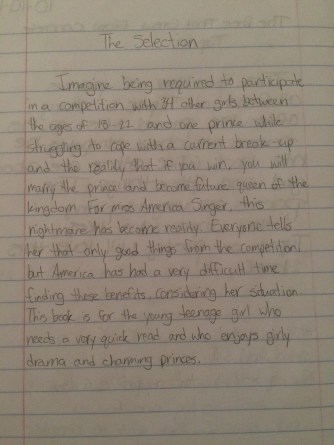 The Selection
Imagine being required to participate
in a competition with 34 other girls between
the ages of 18-22 and one prince while
struggling to cope with a current break-up
and the reality that if you win, you will
marry the prince and become future queen of the
kingdom. For miss America Singer, this
nightmare has become reality. Everyone tells
her that only good things from the competition,
but America has had a very difficult time
finding these benefits, considering her situation.
This book is for the young teenage girl who
needs a very quick read and who enjoys girly
drama and charming princes.